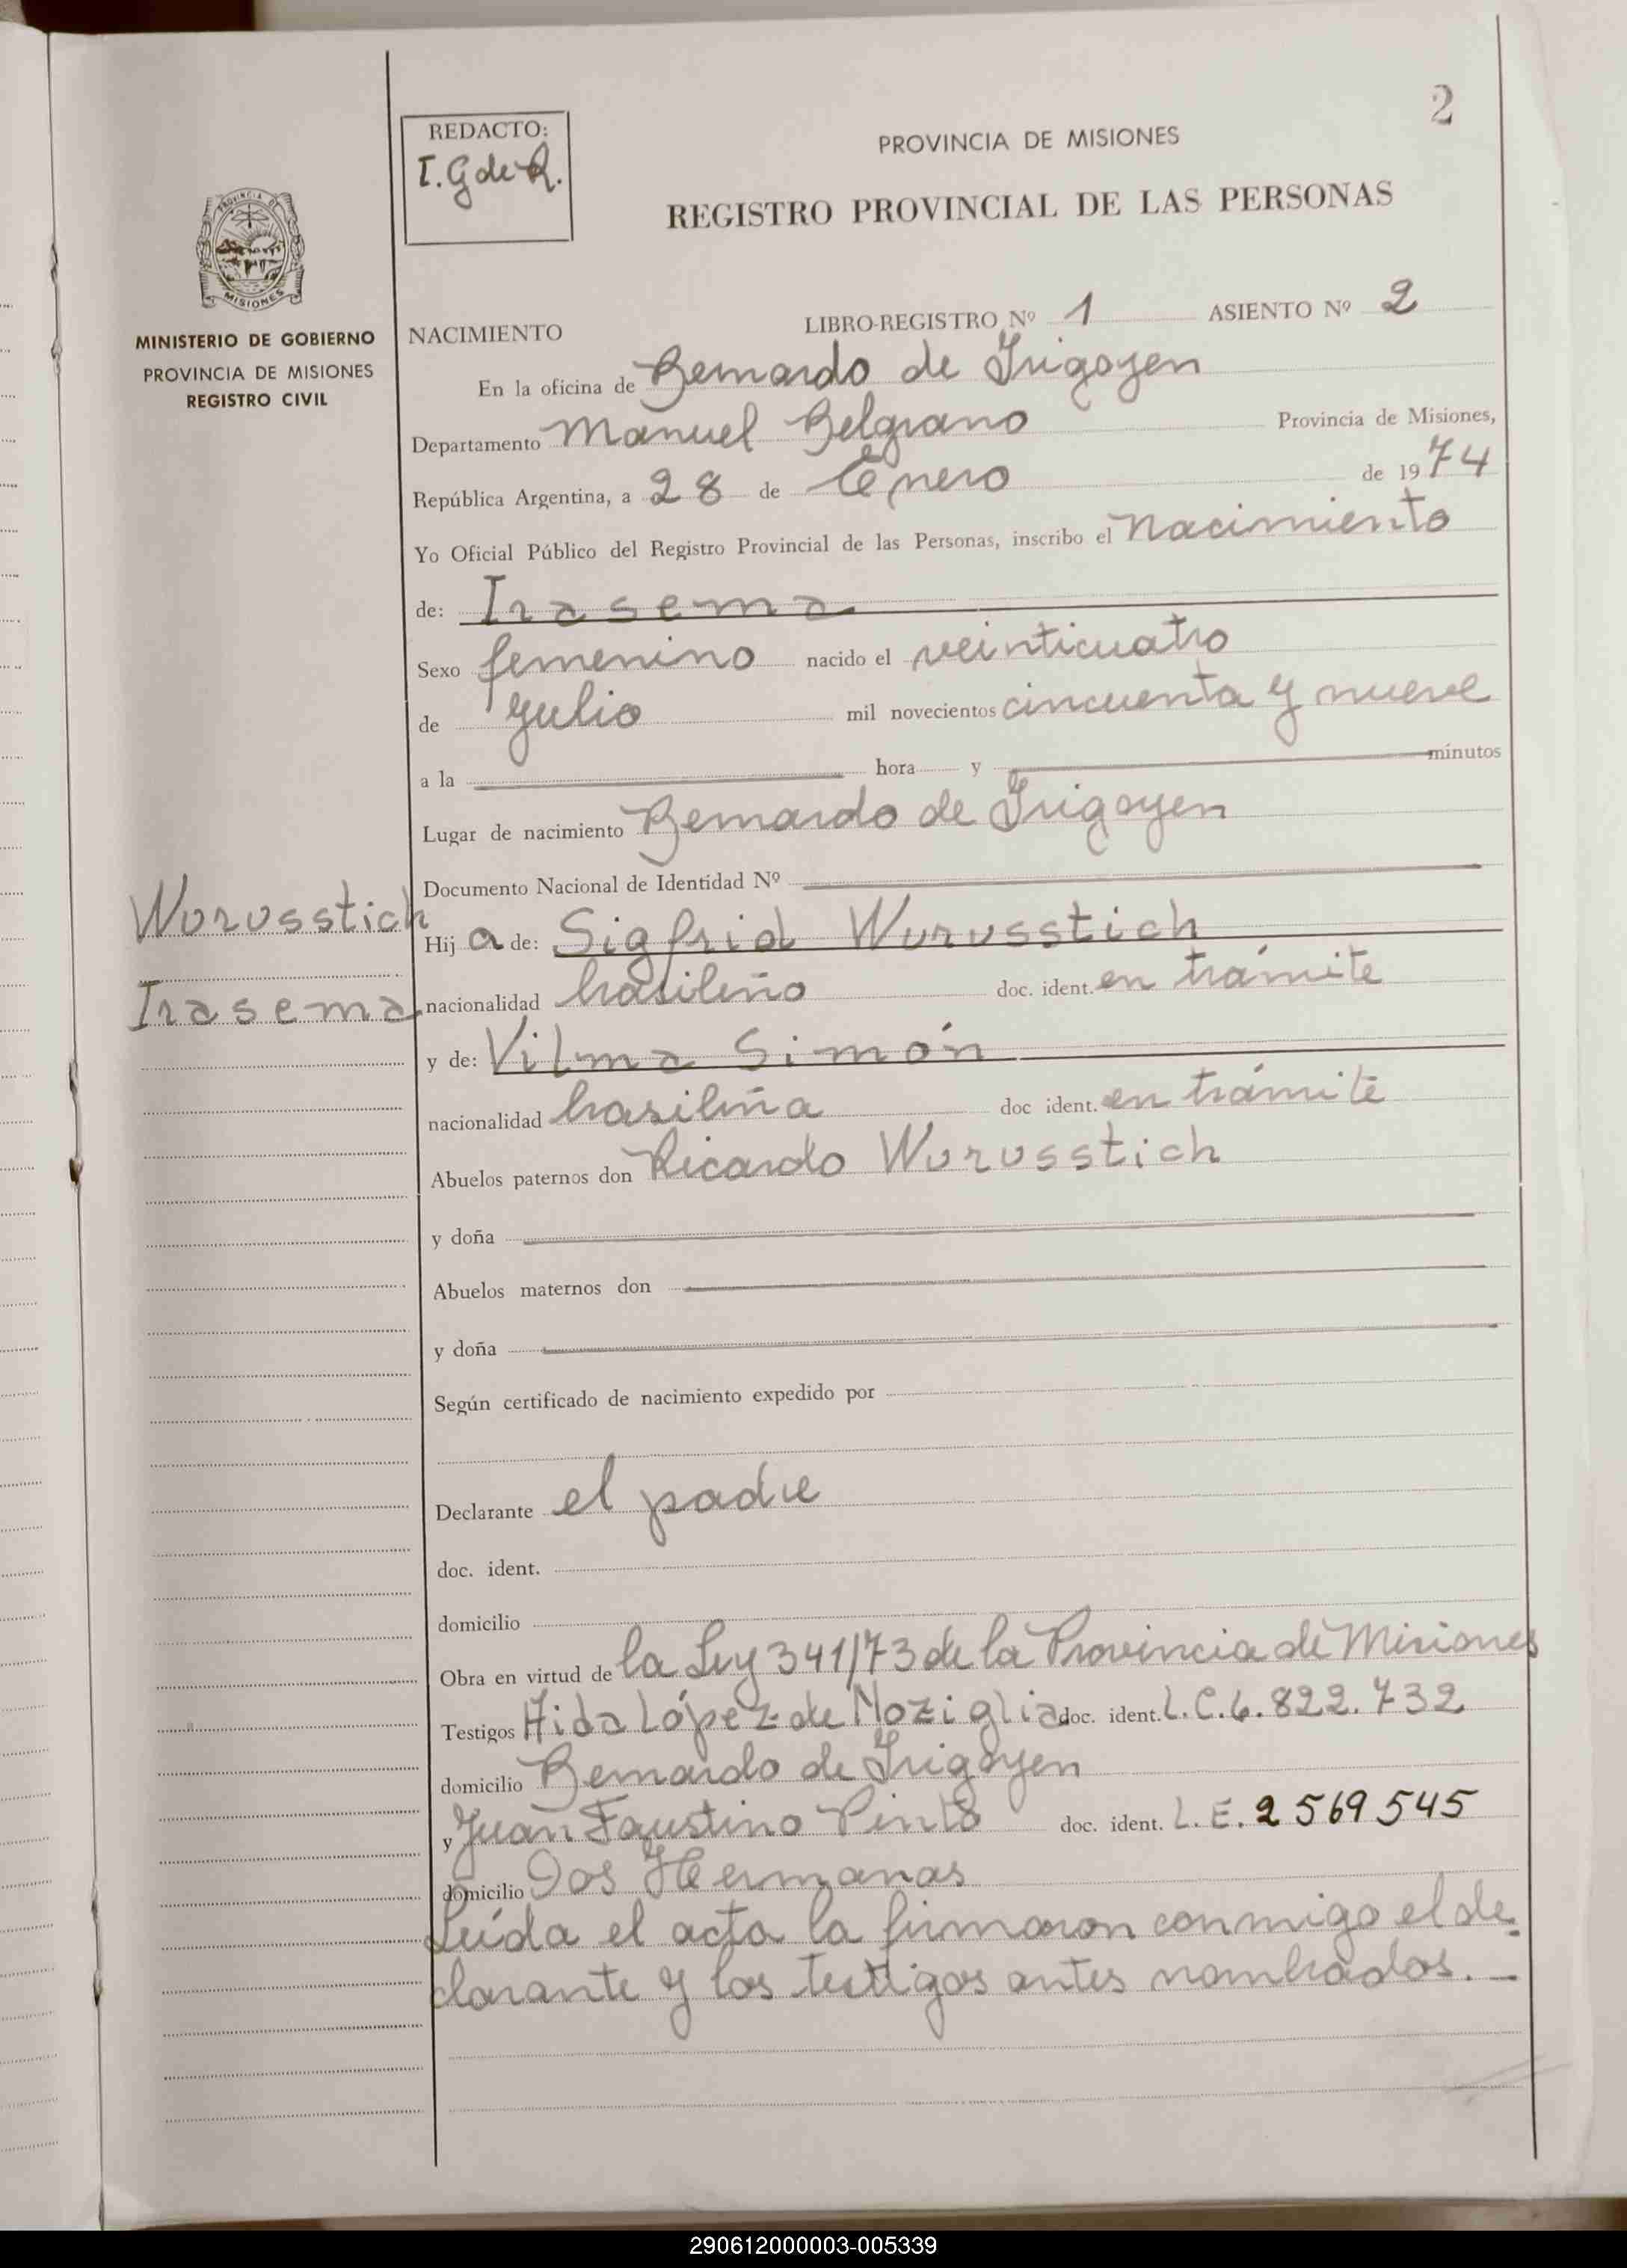 2
REDACTO:
I. G de R.
PROVINCIA DE MISIONES
REGISTRO PROVINCIAL DE LAS PERSONAS
PROVINCIA DE
MISIONES
MINISTERIO DE GOBIERNO
PROVINCIA DE MISIONES
REGISTRO CIVIL
NACIMIENTO LIBRO-REGISTRO Nº 1 ASIENTO Nº 2
En la oficina de Bernardo de Irigoyen
Departamento Manuel Belgrano Provincia de Misiones,
República Argentina, a 28 de Enero de 1974
Yo Oficial Público del Registro Provincial de las Personas, inscribo el Nacimiento
de: Irasema
Sexo femenino nacido el veinticuatro
de Julio mil novecientos cincuenta y nueve
a la hora y minutos
Lugar de nacimiento Bernardo de Irigoyen
Documento Nacional de Identidad Nº
Wurusstich
Hija de: Sigfrid Wurusstich
Irasema
nacionalidad brasileño doc. ident. en trámite
y de: Vilma Simón
nacionalidad brasileña doc ident. en trámite
Abuelos paternos don Ricardo Wurusstich
y doña
Abuelos maternos don
y doña
Según certificado de nacimiento expedido por
Declarante el padre
doc. ident.
domicilio
Obra en virtud de la Ley 341/73 de la Provincia de Misiones
Testigos Aida López de Noziglia doc. ident. L.C. 6.822.732
domicilio Bernardo de Irigoyen
y Juan Faustino Pinto doc. ident. L.E. 2 569 545
domicilio Dos Hermanas
Leída el acta la firmaron conmigo el de-
clarante y los testigos antes nombrados. -
290612000003-005339